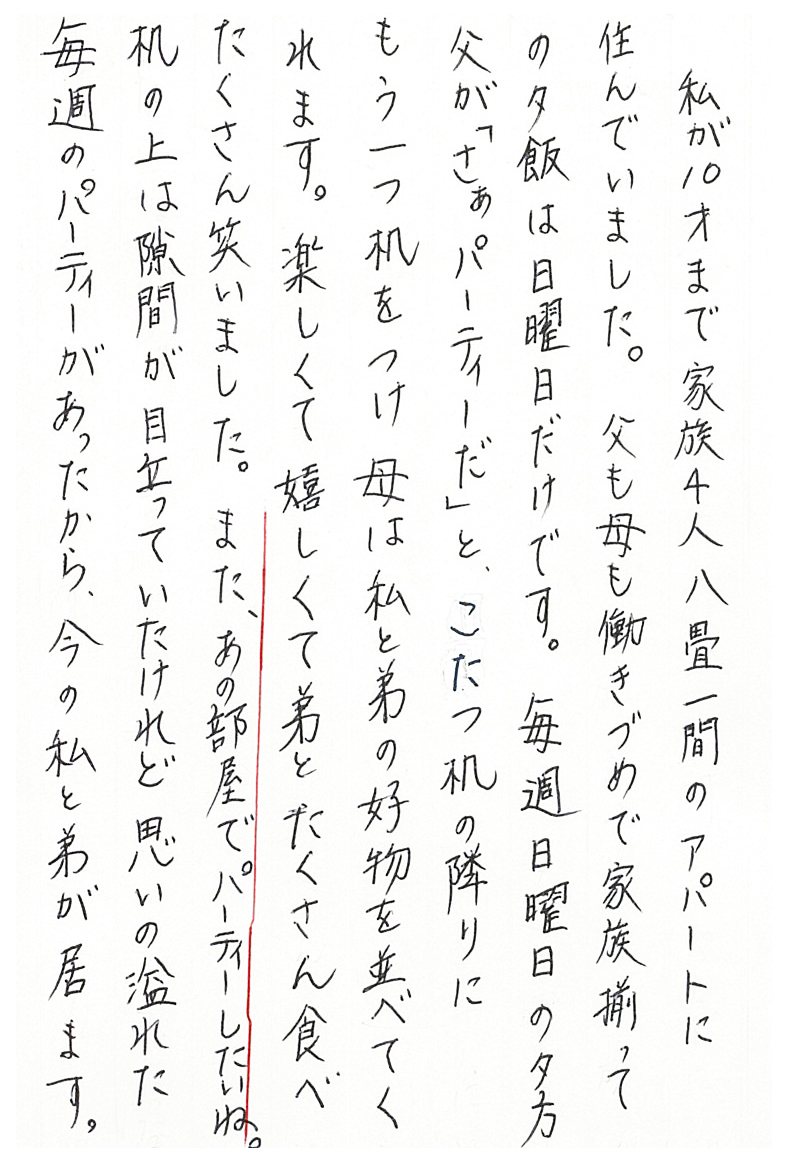 私が10才まで家族4人八畳一間のアパートに
住んでいました。父も母も働きづめで家族揃って
の夕飯は日曜日だけです。毎週日曜日の夕方
父が「さぁパーティーだ」と、こたつ机の隣りに
もう一つ机をつけ母は私と弟の好物を並べてく
れます。楽しくて嬉しくて弟とたくさん食べ
たくさん笑いました。また、あの部屋でパーティーしたいね。
机の上は隙間が目立っていたけれど思いの溢れた
毎週のパーティーがあったから、今の私と弟が居ます。